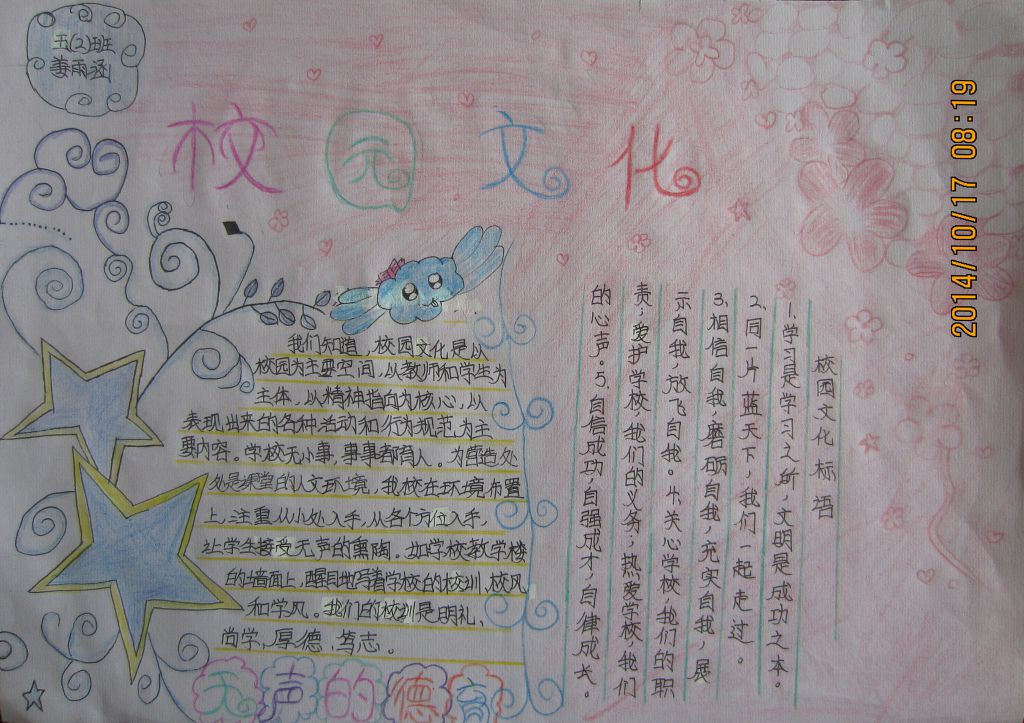 五(2)班
姜雨涵
校园文化
2014/10/17 08:19
我们知道，校园文化是以
校园为主要空间，以教师和学生为
主体，以精神指向为核心，以
表现出来的各种活动和行为规范为主
要内容。学校无小事，事事都育人。为营造处
处是课堂的人文环境，我校在环境布置
上，注重从小处入手，从各个方位入手，
让学生接受无声的熏陶。如学校教学楼
的墙面上，醒目地写着学校的校训、校风
和学风。我们的校训是明礼、
尚学，厚德，笃志。
无声的德育
校园文化标语
1.学习是学习之所，文明是成功之本。
2.同一片蓝天下，我们一起走过。
3.相信自我，磨砺自我，充实自我，展
示自我，放飞自我。4.关心学校，我们的职
责；爱护学校，我们的义务，热爱学校，我们
的心声。5.自信成功，自强成才，自律成长。